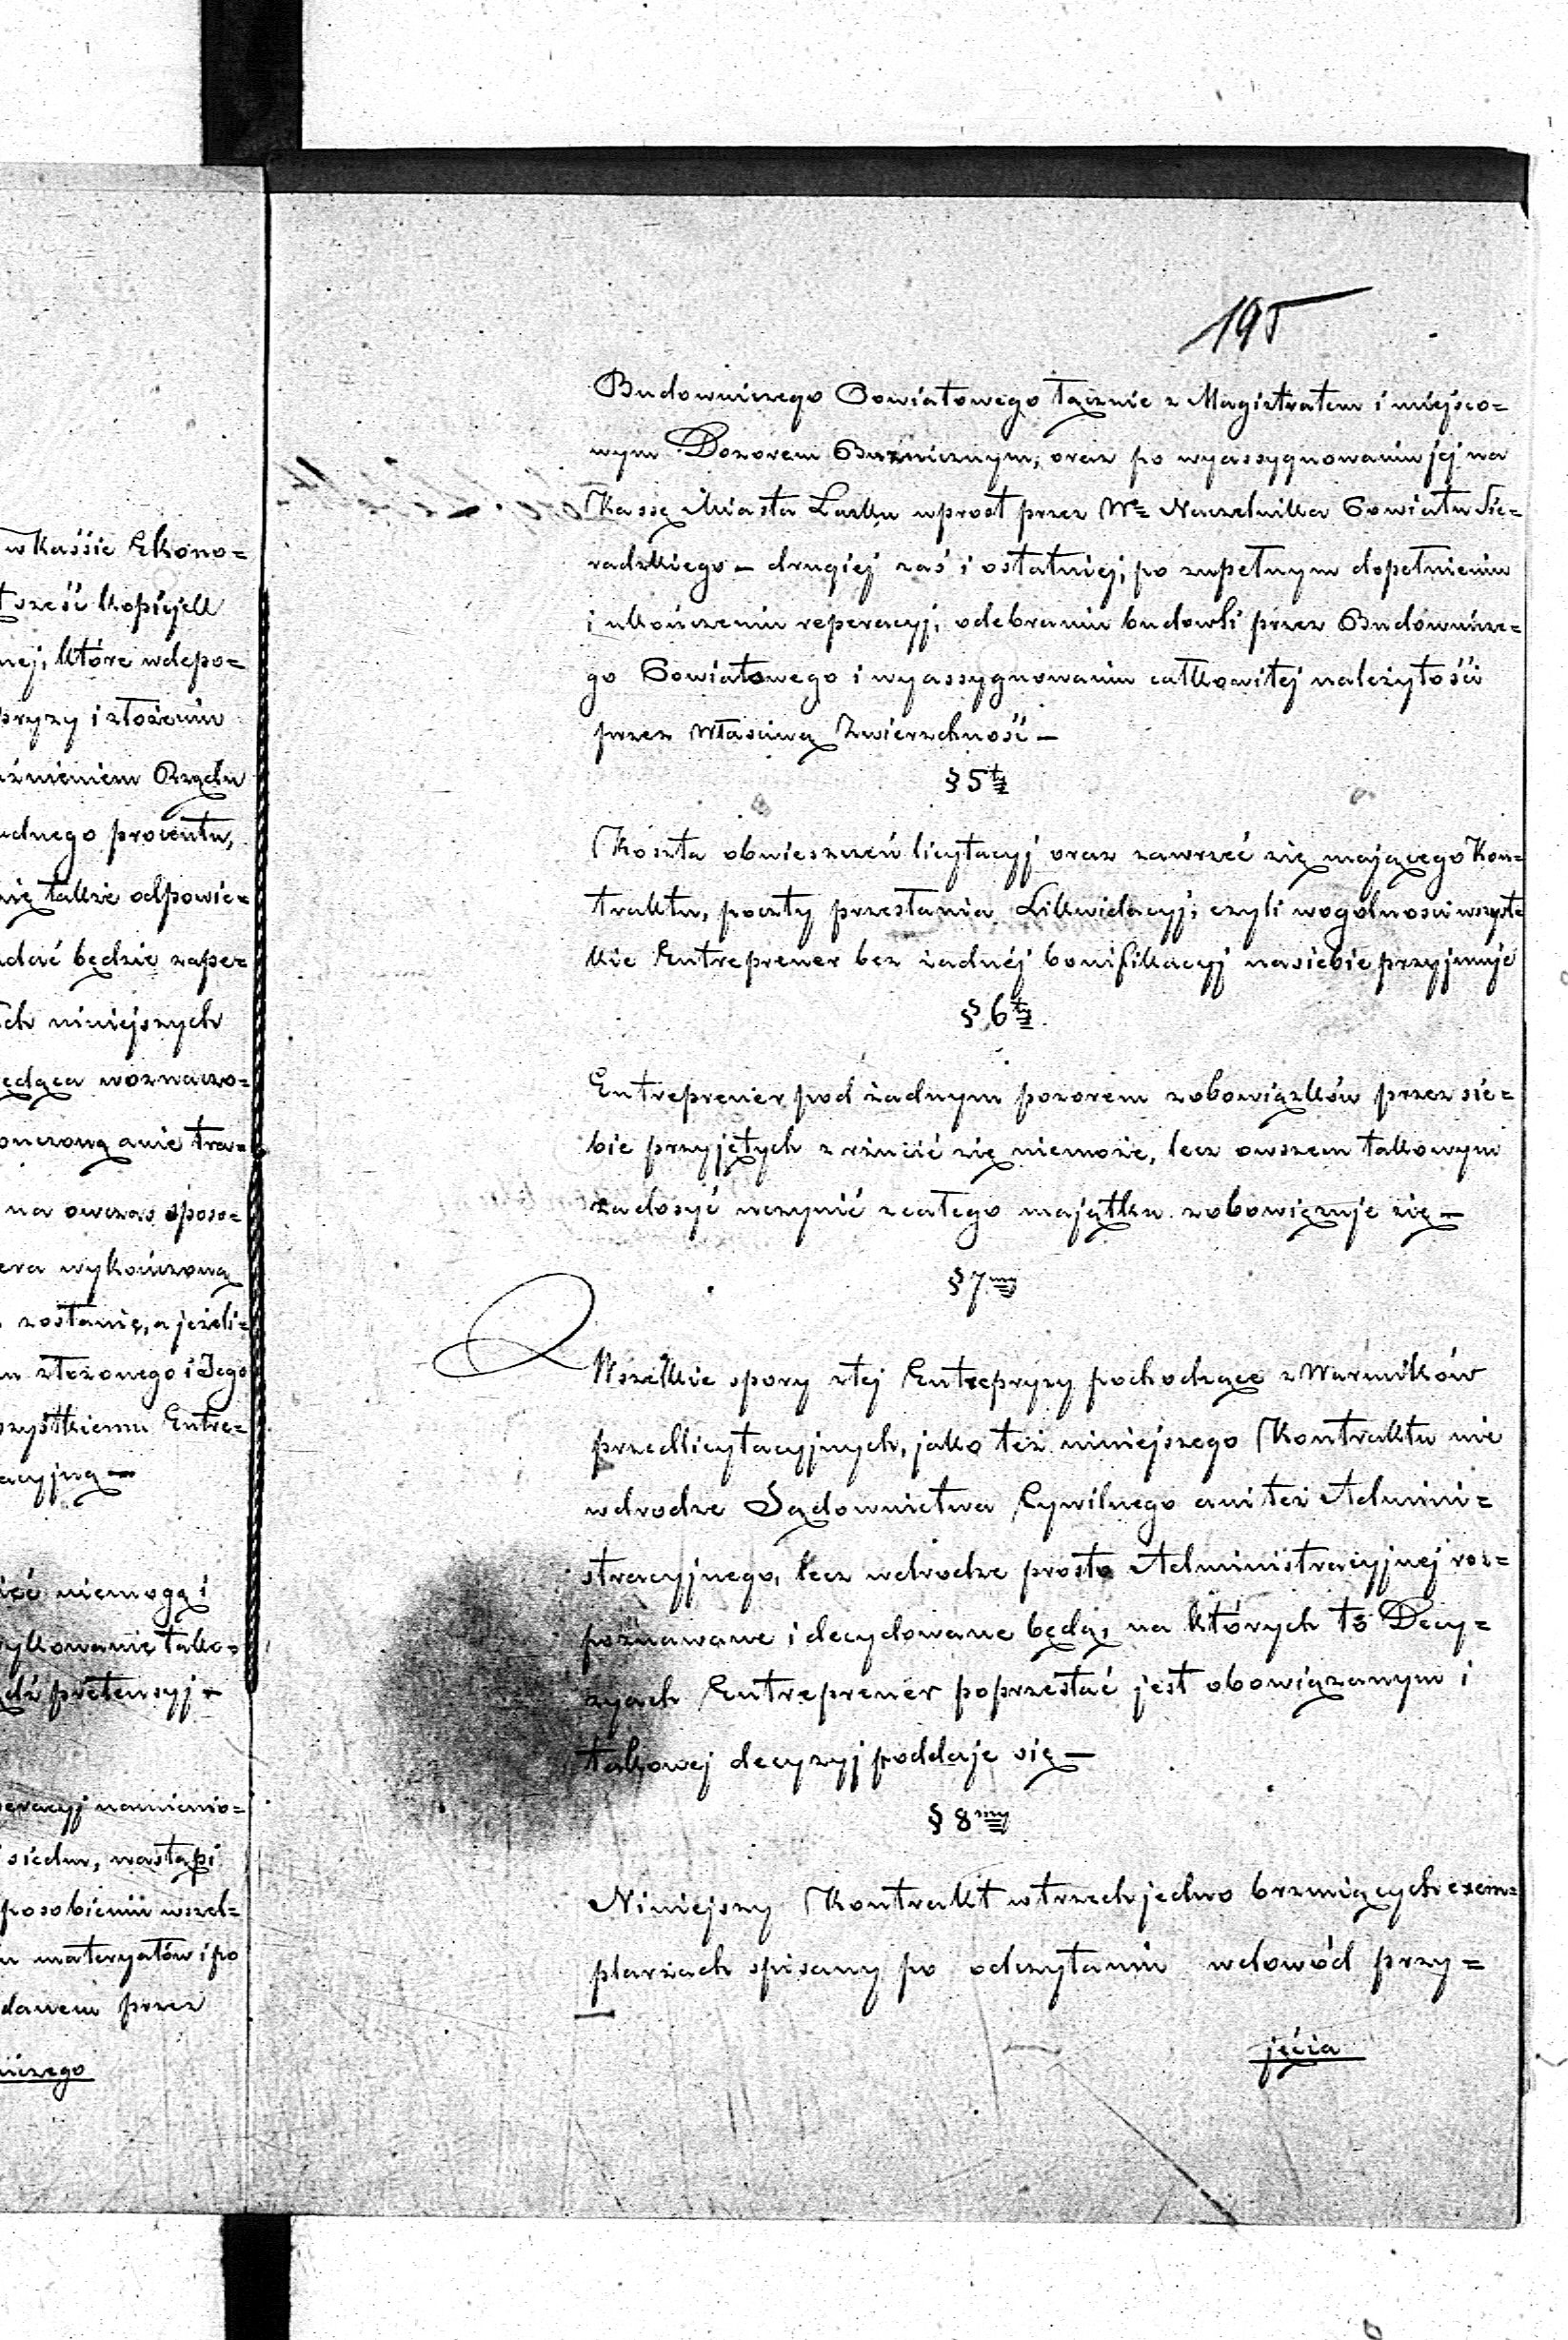 w Kassie Ekono=
sześć kopiejek
nej, które wdepo=
pryzy i złożeniu
Rządu
procentu,
także odpowie=
będzie zape=
niniejszych
woznaczo=
anie tra=
na owczas sposo=
wykończoną
zostanie, a jeżeli=
złożonego i Jego
Entre=
niemogą i
tako=
pretensyj —
namienio=
nastąpi
wszel=
materyałów i po
przez
195
Budowniczego Powiatowego łącznie z Magistratem i miejsco=
wym Dozorem Bużnicznym, oraz po wyassygnowaniu jej na
Kassę Miasta Łasku wprost przez Wo Naczelnika Powiatu Sie=
radzkiego — drugiej zaś i ostatniej, po zupełnym dopełnieniu
i ukończeniu reperacyj, odebraniu budowli przez Budownicze=
go Powiatowego i wyassygnowaniu całkowitej należytości
przez Właściwą Zwierzchność —
§ 5ty
Koszta obwieszczeń licytacyj oraz zawrzeć się mającego Kon=
traktu, poczty przesłania Likwidacyj, czyli wogolności wszyst=
kie Entreprener bez żadnéj bonifikacyj nasiebie przyjmuje
§ 6ty
Entreprener pod żadnym pozorem zobowiązków przez sie=
bie przyjętych zrzucić się niemoże, lecz owszem takowym
zadosyć uczynić zcałego majątku zobowięzuje się —
§ 7my
Wszelkie spory ztej Entrepryzy pochodzące z Warunków
przedlicytacyjnych, jako też niniejszego Kontraktu nie
wdrodze Sądownictwa Cywilnego ani też Admini=
stracyjnego, lecz wdrodze prosto Administracyjnej roz=
poznawane i decydowane będą, na których to Decy=
zyach Entreprener poprzestać jest obowiązanym i
takowej decyzyj poddaje się —
§ 8my
Niniejszy Kontrakt wtrzech jedno brzmiących exem=
plarzach spisany po odczytaniu wdowód przy=
jęcia